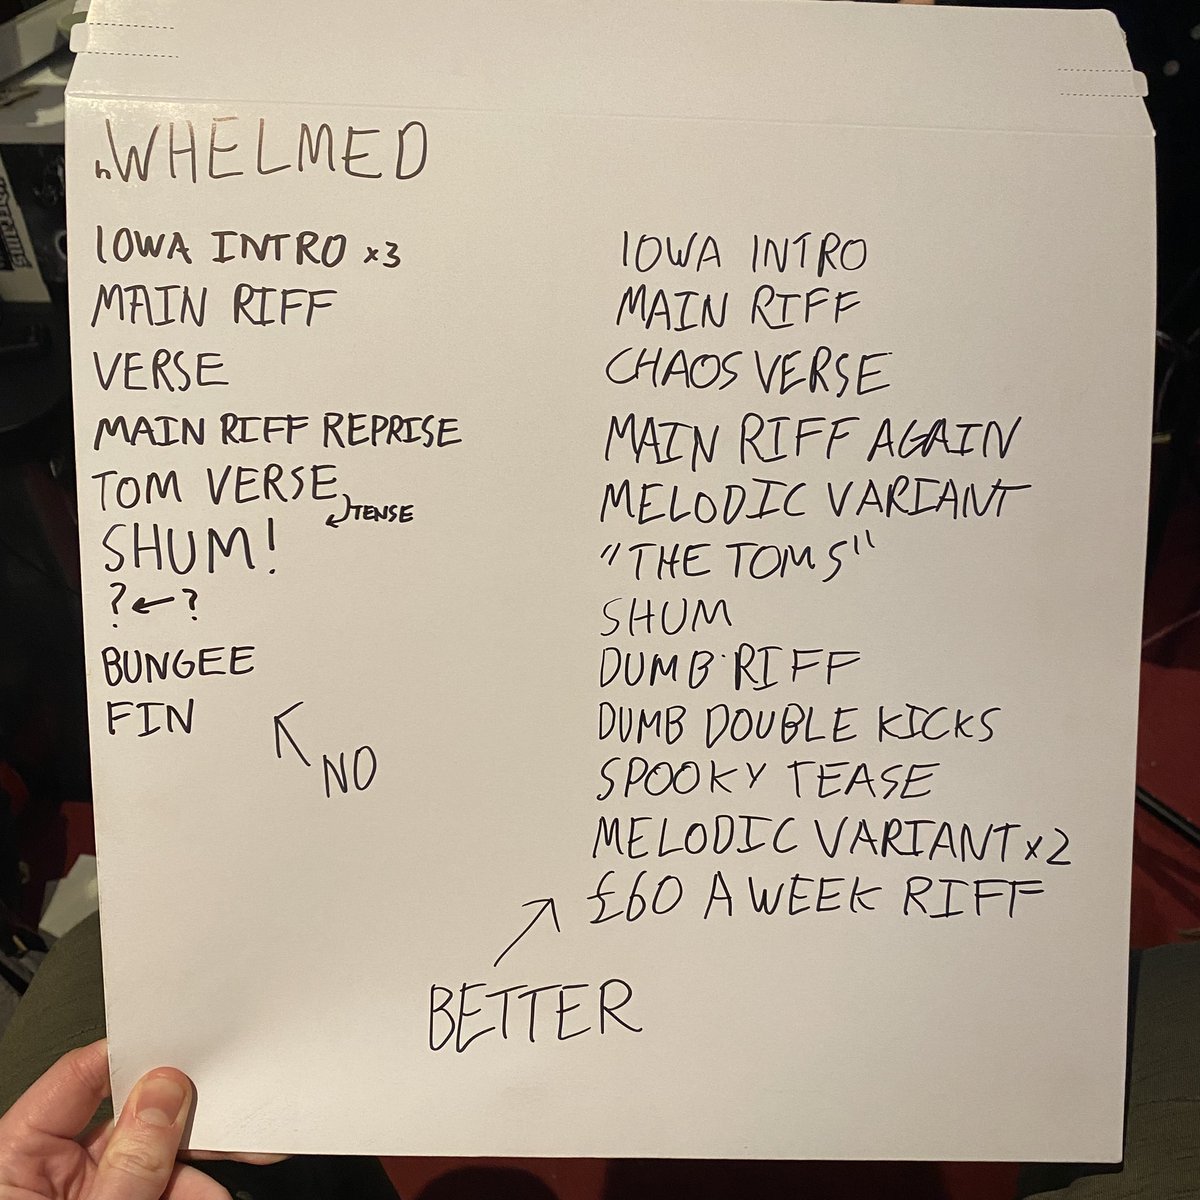 hWHELMED
IOWA INTRO x3
MAIN RIFF
VERSE
MAIN RIFF REPRISE
TOM VERSE
TENSE
SHUM!
? ← ?
BUNGEE
FIN
NO
IOWA INTRO
MAIN RIFF
CHAOS VERSE
MAIN RIFF AGAIN
MELODIC VARIANT
"THE TOMS"
SHUM
DUMB RIFF
DUMB DOUBLE KICKS
SPOOKY TEASE
MELODIC VARIANT x2
£60 A WEEK RIFF
BETTER